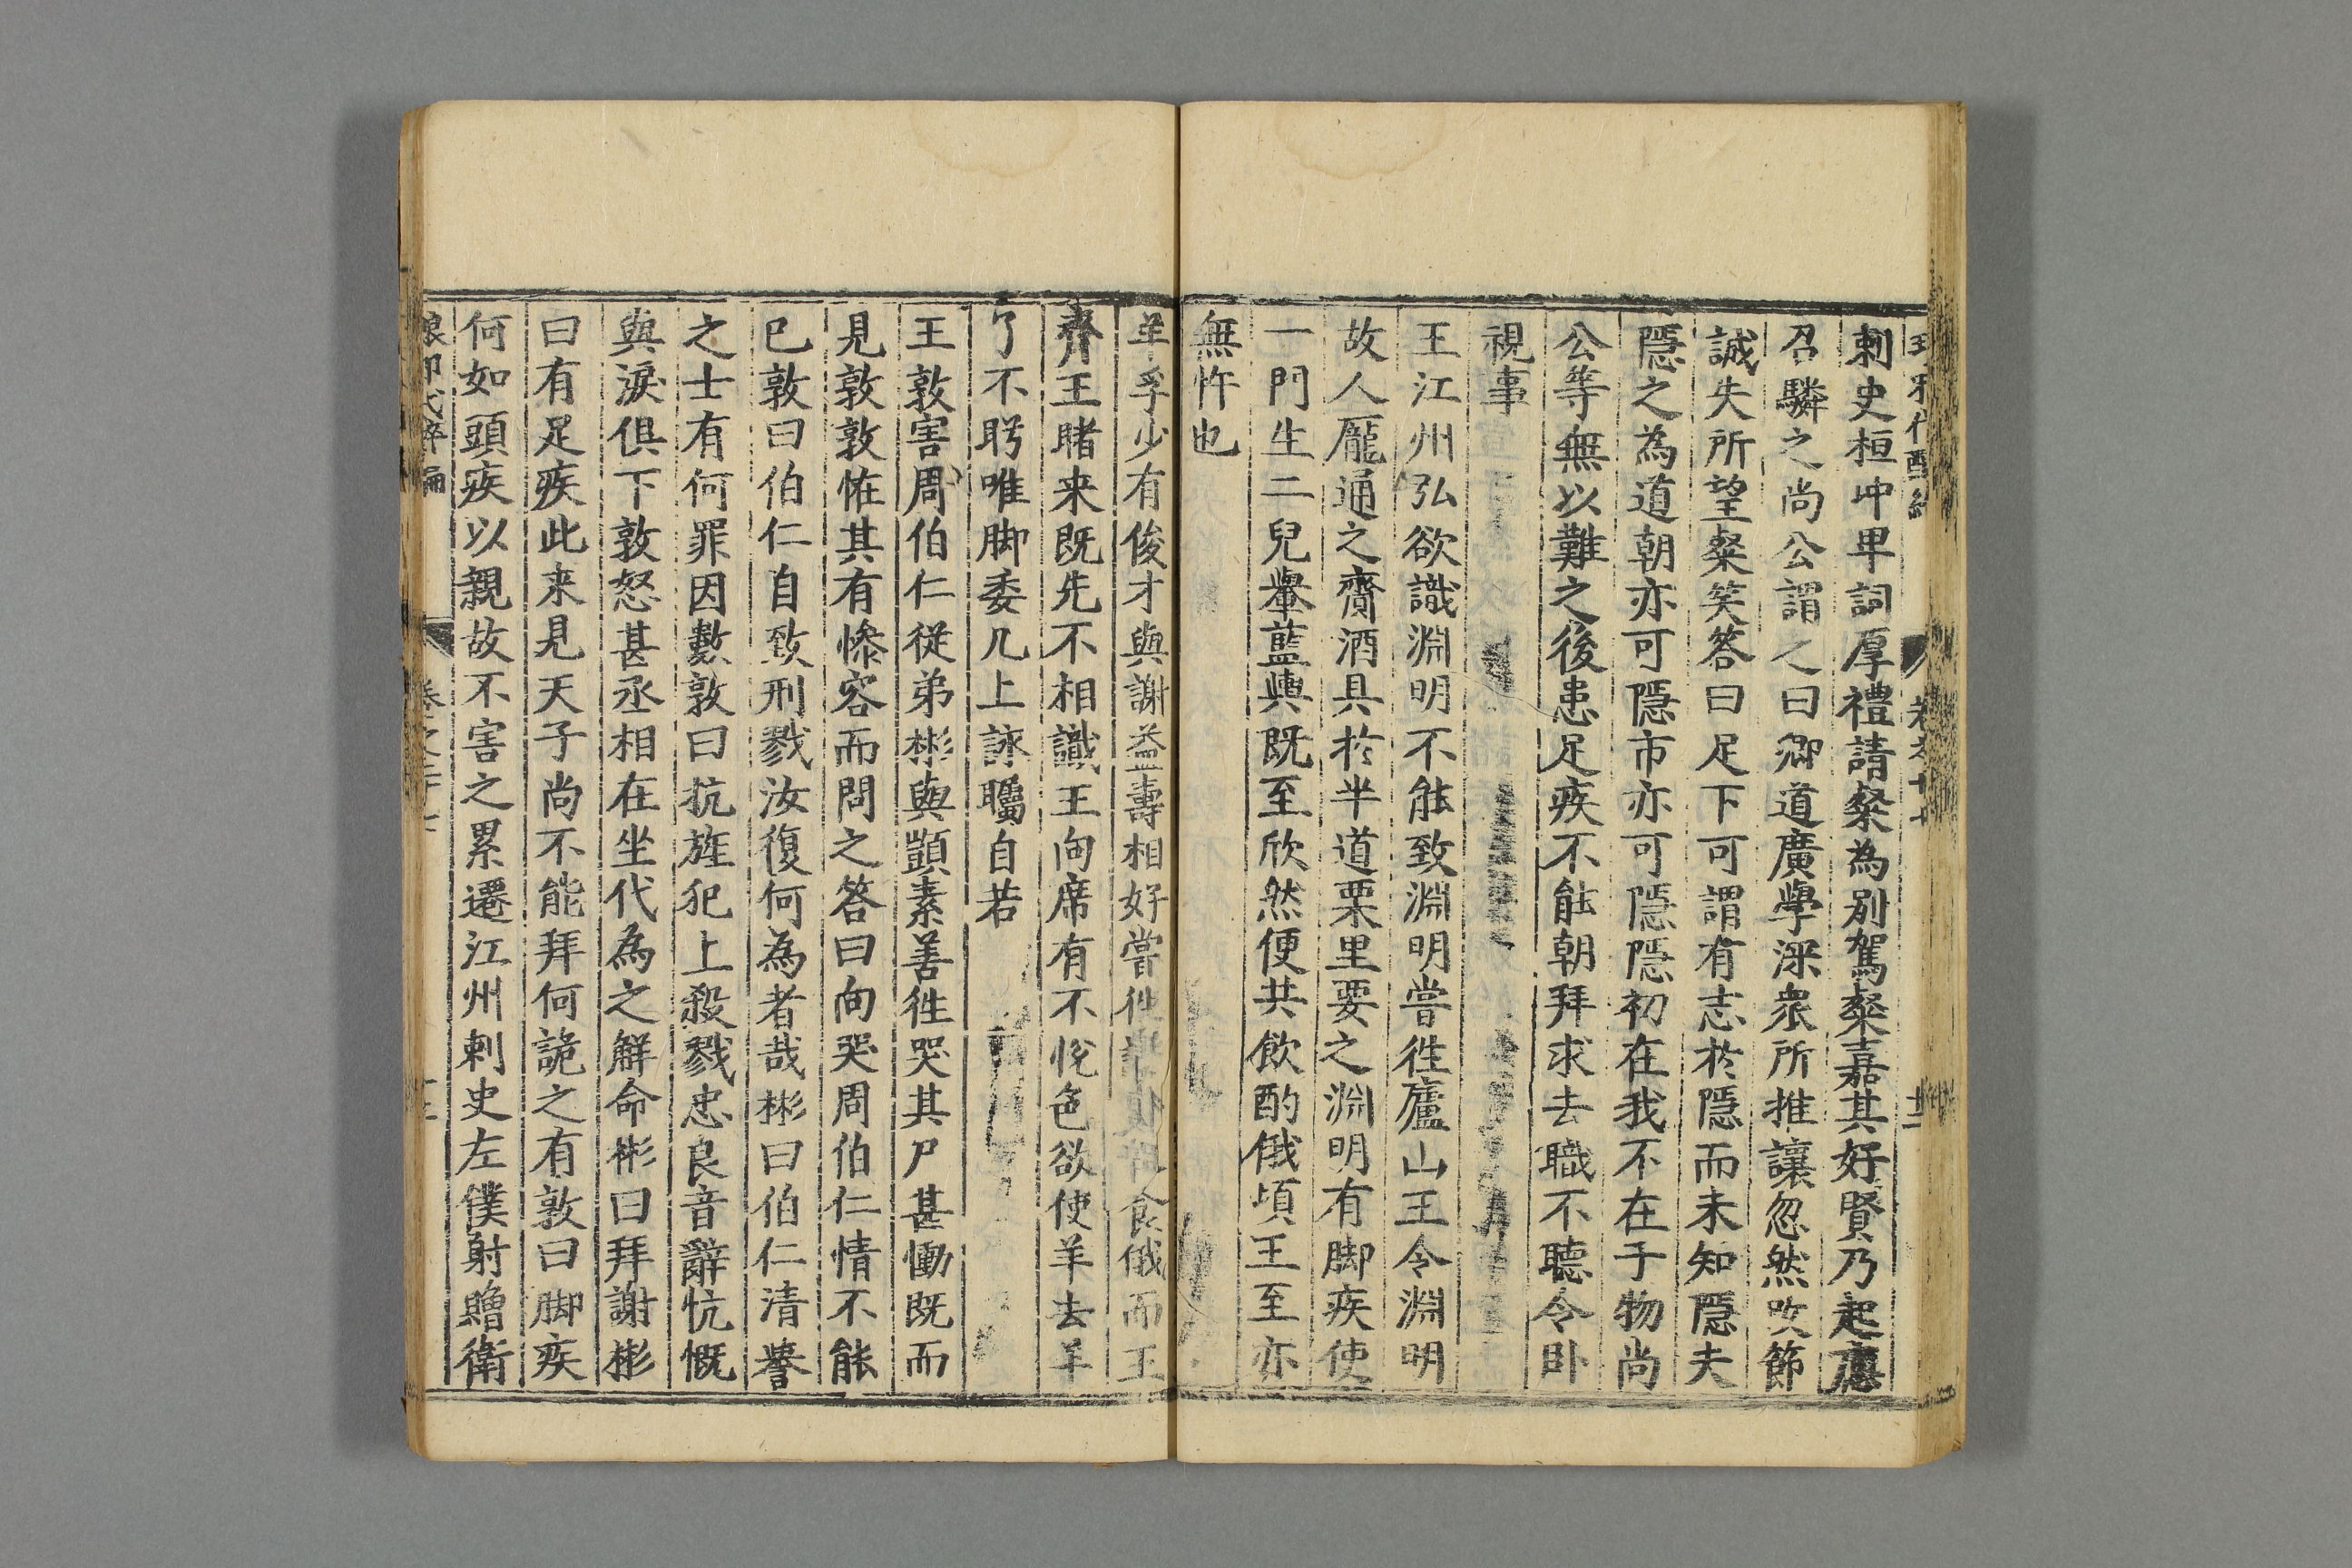 刺史桓冲卑詞厚禮請粲為別駕粲嘉其好賢乃起應
召驎之尚公謂之曰卿道廣學深衆所推讓忽然改節
誠失所望粲笑荅曰足下可謂有志於隱而未知隱夫
隱之為道朝亦可隱市亦可隱隱初在我不在于物尚
公等無以難之後患足疾不能朝拜求去職不聽令卧
視事
王江州弘欲識淵明不能致淵明嘗徃廬山王令淵明
故人龐通之齎酒具於半道栗里要之淵明有脚疾使
一門生二兒轝藍輿既至欣然便共飲酌俄頃王至亦
無忤也
羊孚少有俊才與謝益壽相好嘗徃謝食俄而王
齊王睹来既先不相識王向席有不恱色欲使羊去羊
了不眄唯脚委几上詠矚自若
王敦害周伯仁從弟彬與顗素善徃哭其尸甚慟既而
見敦敦恠其有慘容而問之荅曰向哭周伯仁情不能
已敦曰伯仁自致刑戮汝復何為者哉彬曰伯仁清譽
之士有何罪因數敦曰抗旌犯上殺戮忠良音辭忼慨
與淚俱下敦怒甚丞相在坐代為之解命彬曰拜謝彬
曰有足疾此来見天子尚不能拜何詭之有敦曰脚疾
何如頭疾以親故不害之累遷江州刺史左僕射贈衛